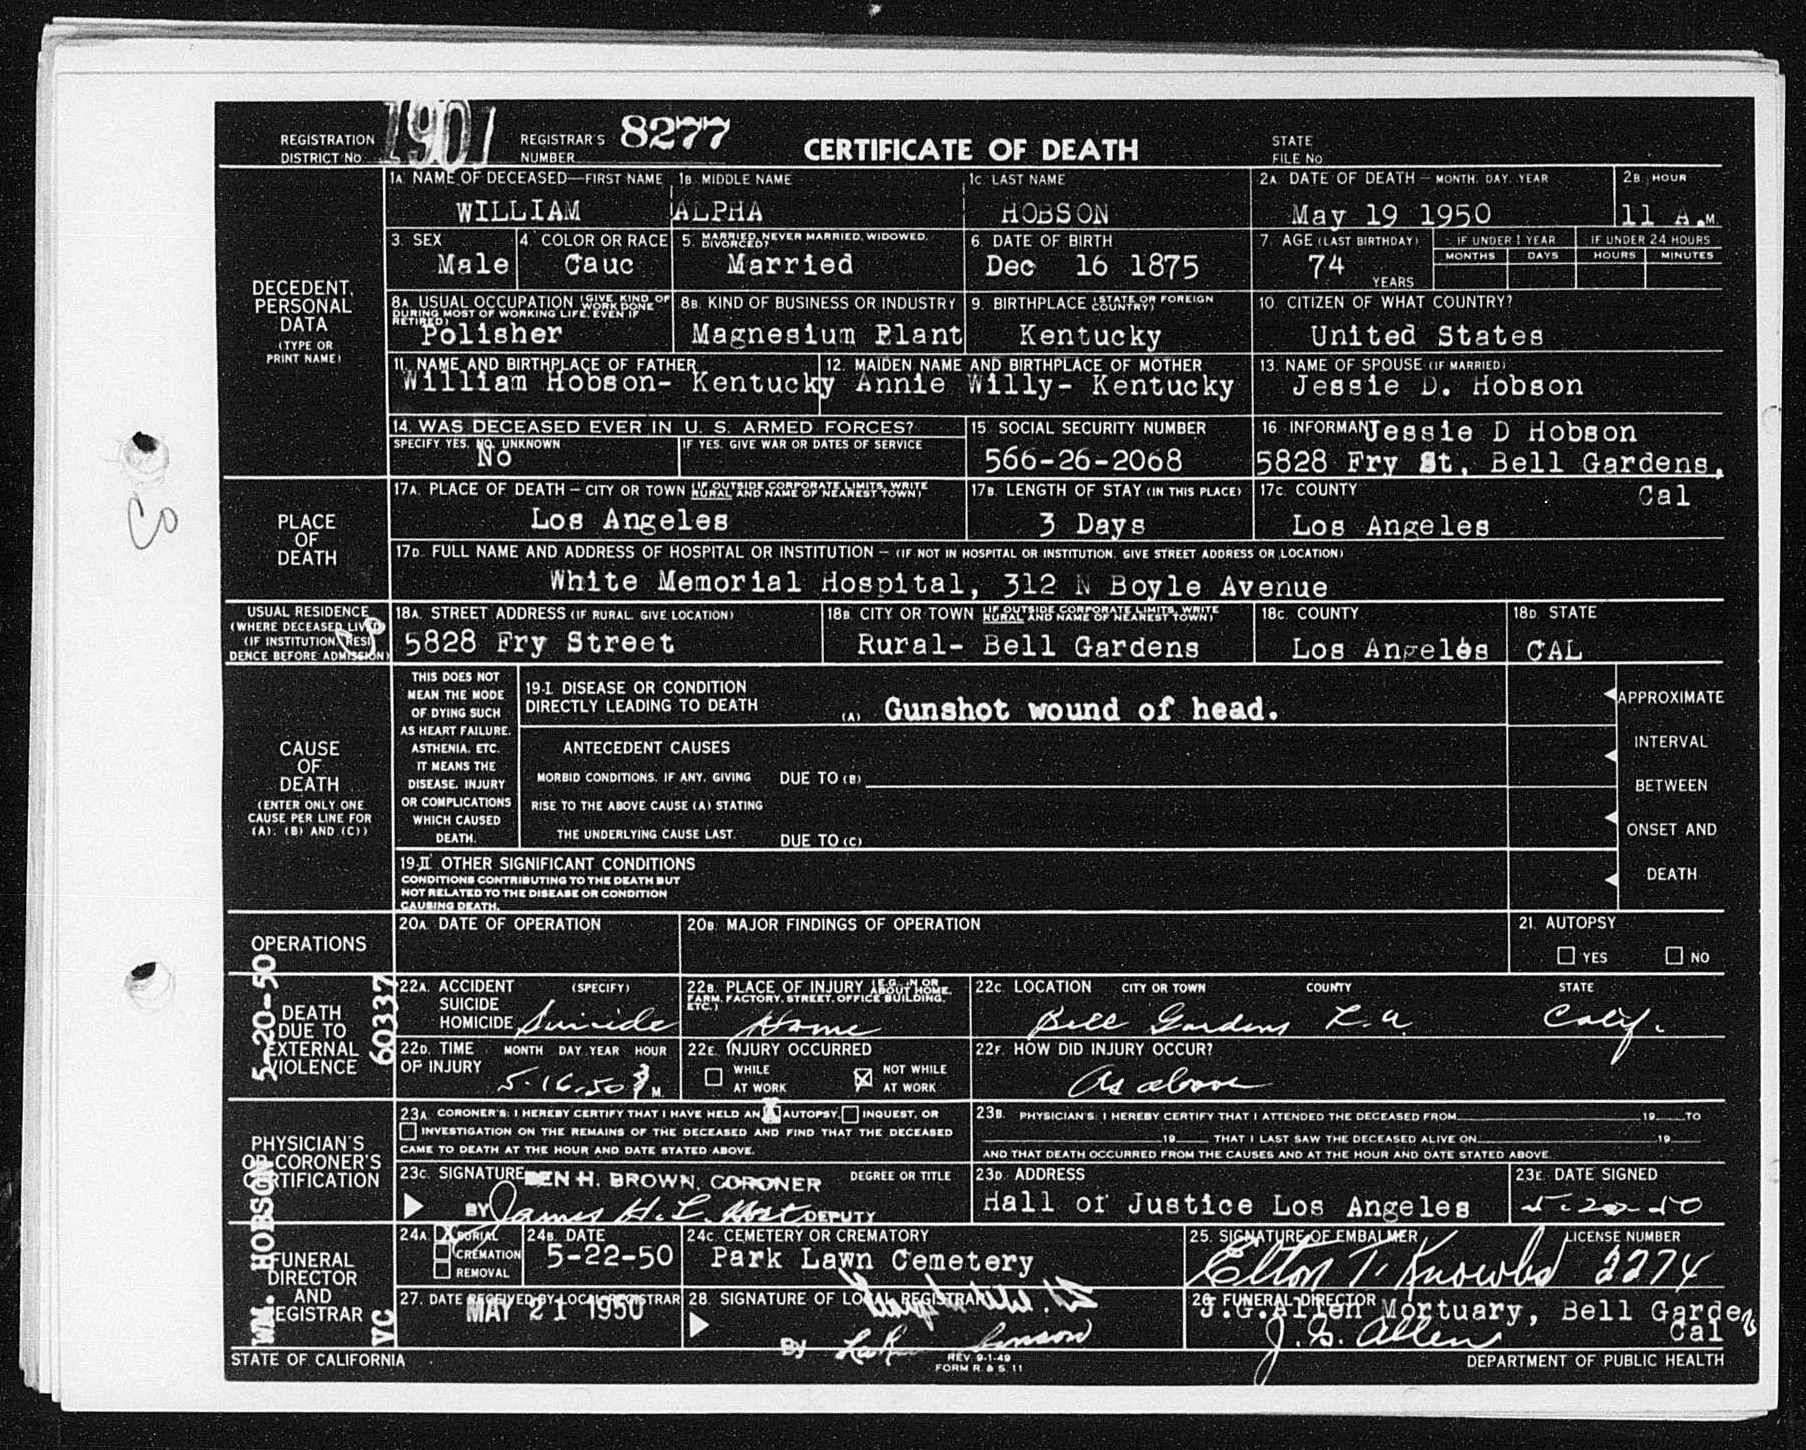 REGISTRATION DISTRICT No 1901 REGISTRAR'S NUMBER 8277 CERTIFICATE OF DEATH STATE FILE No
DECEDENT, PERSONAL DATA (TYPE OR PRINT NAME)
1A. NAME OF DECEASED—FIRST NAME 1B. MIDDLE NAME 1C. LAST NAME 2A. DATE OF DEATH — MONTH, DAY, YEAR 2B. HOUR
WILLIAM ALPHA HOBSON May 19 1950 11 A.M.
3. SEX 4. COLOR OR RACE 5. MARRIED, NEVER MARRIED, WIDOWED, DIVORCED? 6. DATE OF BIRTH 7. AGE (LAST BIRTHDAY) IF UNDER 1 YEAR IF UNDER 24 HOURS
MONTHS DAYS HOURS MINUTES
Male Cauc Married Dec 16 1875 74 YEARS
8A. USUAL OCCUPATION (GIVE KIND OF WORK DONE DURING MOST OF WORKING LIFE, EVEN IF RETIRED) 8B. KIND OF BUSINESS OR INDUSTRY 9. BIRTHPLACE (STATE OR FOREIGN COUNTRY) 10. CITIZEN OF WHAT COUNTRY?
Polisher Magnesium Plant Kentucky United States
11. NAME AND BIRTHPLACE OF FATHER 12. MAIDEN NAME AND BIRTHPLACE OF MOTHER 13. NAME OF SPOUSE (IF MARRIED)
William Hobson- Kentucky Annie Willy- Kentucky Jessie D. Hobson
14. WAS DECEASED EVER IN U. S. ARMED FORCES? 15. SOCIAL SECURITY NUMBER 16. INFORMANT Jessie D Hobson
SPECIFY YES, NO, UNKNOWN IF YES, GIVE WAR OR DATES OF SERVICE
No 566-26-2068 5828 Fry St, Bell Gardens, Cal
PLACE OF DEATH
17A. PLACE OF DEATH — CITY OR TOWN (IF OUTSIDE CORPORATE LIMITS, WRITE RURAL AND NAME OF NEAREST TOWN) 17B. LENGTH OF STAY (IN THIS PLACE) 17C. COUNTY
Los Angeles 3 Days Los Angeles
17D. FULL NAME AND ADDRESS OF HOSPITAL OR INSTITUTION — (IF NOT IN HOSPITAL OR INSTITUTION, GIVE STREET ADDRESS OR LOCATION)
White Memorial Hospital, 312 N Boyle Avenue
USUAL RESIDENCE (WHERE DECEASED LIVED (IF INSTITUTION, RESIDENCE BEFORE ADMISSION)
18A. STREET ADDRESS (IF RURAL, GIVE LOCATION) 18B. CITY OR TOWN (IF OUTSIDE CORPORATE LIMITS, WRITE RURAL AND NAME OF NEAREST TOWN) 18C. COUNTY 18D. STATE
5828 Fry Street Rural- Bell Gardens Los Angeles CAL
CAUSE OF DEATH (ENTER ONLY ONE CAUSE PER LINE FOR (A), (B) AND (C))
THIS DOES NOT MEAN THE MODE OF DYING SUCH AS HEART FAILURE, ASTHENIA, ETC. IT MEANS THE DISEASE, INJURY OR COMPLICATIONS WHICH CAUSED DEATH.
19-I. DISEASE OR CONDITION DIRECTLY LEADING TO DEATH (A) Gunshot wound of head.
ANTECEDENT CAUSES
MORBID CONDITIONS, IF ANY, GIVING DUE TO (B)
RISE TO THE ABOVE CAUSE (A) STATING
THE UNDERLYING CAUSE LAST. DUE TO (C)
APPROXIMATE INTERVAL BETWEEN ONSET AND DEATH
19-II. OTHER SIGNIFICANT CONDITIONS
CONDITIONS CONTRIBUTING TO THE DEATH BUT NOT RELATED TO THE DISEASE OR CONDITION CAUSING DEATH.
OPERATIONS
20A. DATE OF OPERATION 20B. MAJOR FINDINGS OF OPERATION 21. AUTOPSY
YES NO
DEATH DUE TO EXTERNAL VIOLENCE
5-20-50 60337
22A. ACCIDENT SUICIDE HOMICIDE (SPECIFY) Suicide
22B. PLACE OF INJURY (E.G., IN OR ABOUT HOME, FARM, FACTORY, STREET, OFFICE BUILDING, ETC.) Home
22C. LOCATION CITY OR TOWN COUNTY STATE
Bell Gardens L.A. Calif.
22D. TIME OF INJURY MONTH DAY YEAR HOUR 5-16-50 M.
22E. INJURY OCCURRED WHILE AT WORK NOT WHILE AT WORK
22F. HOW DID INJURY OCCUR? As above
PHYSICIAN'S OR CORONER'S CERTIFICATION
23A. CORONER'S: I HEREBY CERTIFY THAT I HAVE HELD AN AUTOPSY, INQUEST, OR INVESTIGATION ON THE REMAINS OF THE DECEASED AND FIND THAT THE DECEASED CAME TO DEATH AT THE HOUR AND DATE STATED ABOVE.
23B. PHYSICIAN'S: I HEREBY CERTIFY THAT I ATTENDED THE DECEASED FROM 19 TO 19 THAT I LAST SAW THE DECEASED ALIVE ON 19 AND THAT DEATH OCCURRED FROM THE CAUSES AND AT THE HOUR AND DATE STATED ABOVE.
23C. SIGNATURE BEN H. BROWN, CORONER DEGREE OR TITLE 23D. ADDRESS 23E. DATE SIGNED
BY James H. L. DEPUTY Hall of Justice Los Angeles 5-20-50
FUNERAL DIRECTOR AND REGISTRAR
WM. HOBSON VC
24A. BURIAL CREMATION REMOVAL 24B. DATE 24C. CEMETERY OR CREMATORY 25. SIGNATURE OF EMBALMER LICENSE NUMBER
5-22-50 Park Lawn Cemetery Elton T. Knowles 2274
27. DATE RECEIVED BY LOCAL REGISTRAR 28. SIGNATURE OF LOCAL REGISTRAR 26. FUNERAL DIRECTOR
MAY 21 1950 J.G.Allen Mortuary, Bell Gardens Cal
By J. G. Allen
STATE OF CALIFORNIA REV. 9-1-49 FORM R. & S. 11 DEPARTMENT OF PUBLIC HEALTH
Co